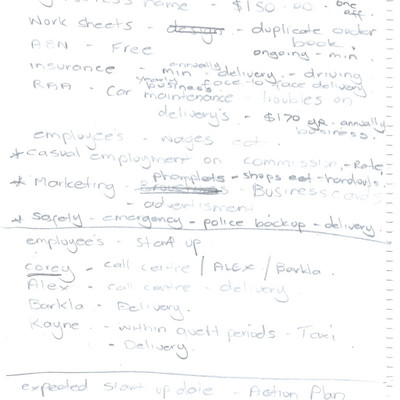 name - $150.00. one off.
Work sheets - design - duplicate order book.
ABN - Free ongoing - min.
insurance - annually min - delivery - driving
RAA - Car yearly business face to face delivery
maintenance - troubles on
delivery's - $170 yr. annually business.
employee's - wages ect.
* Casual employment on commission, - Rate,
* Marketing - Phamplets - shops ect - handouts.
- Business cards
- advertisment
* Safety - emergency - police backup - delivery.
employee's - start up
Corey - call centre / ALEX / Barkla.
Alex - call centre - delivery
Barkla - Delivery.
Kayne - within quett periods - Taxi
- Delivery.
expected start up date - Action Plan